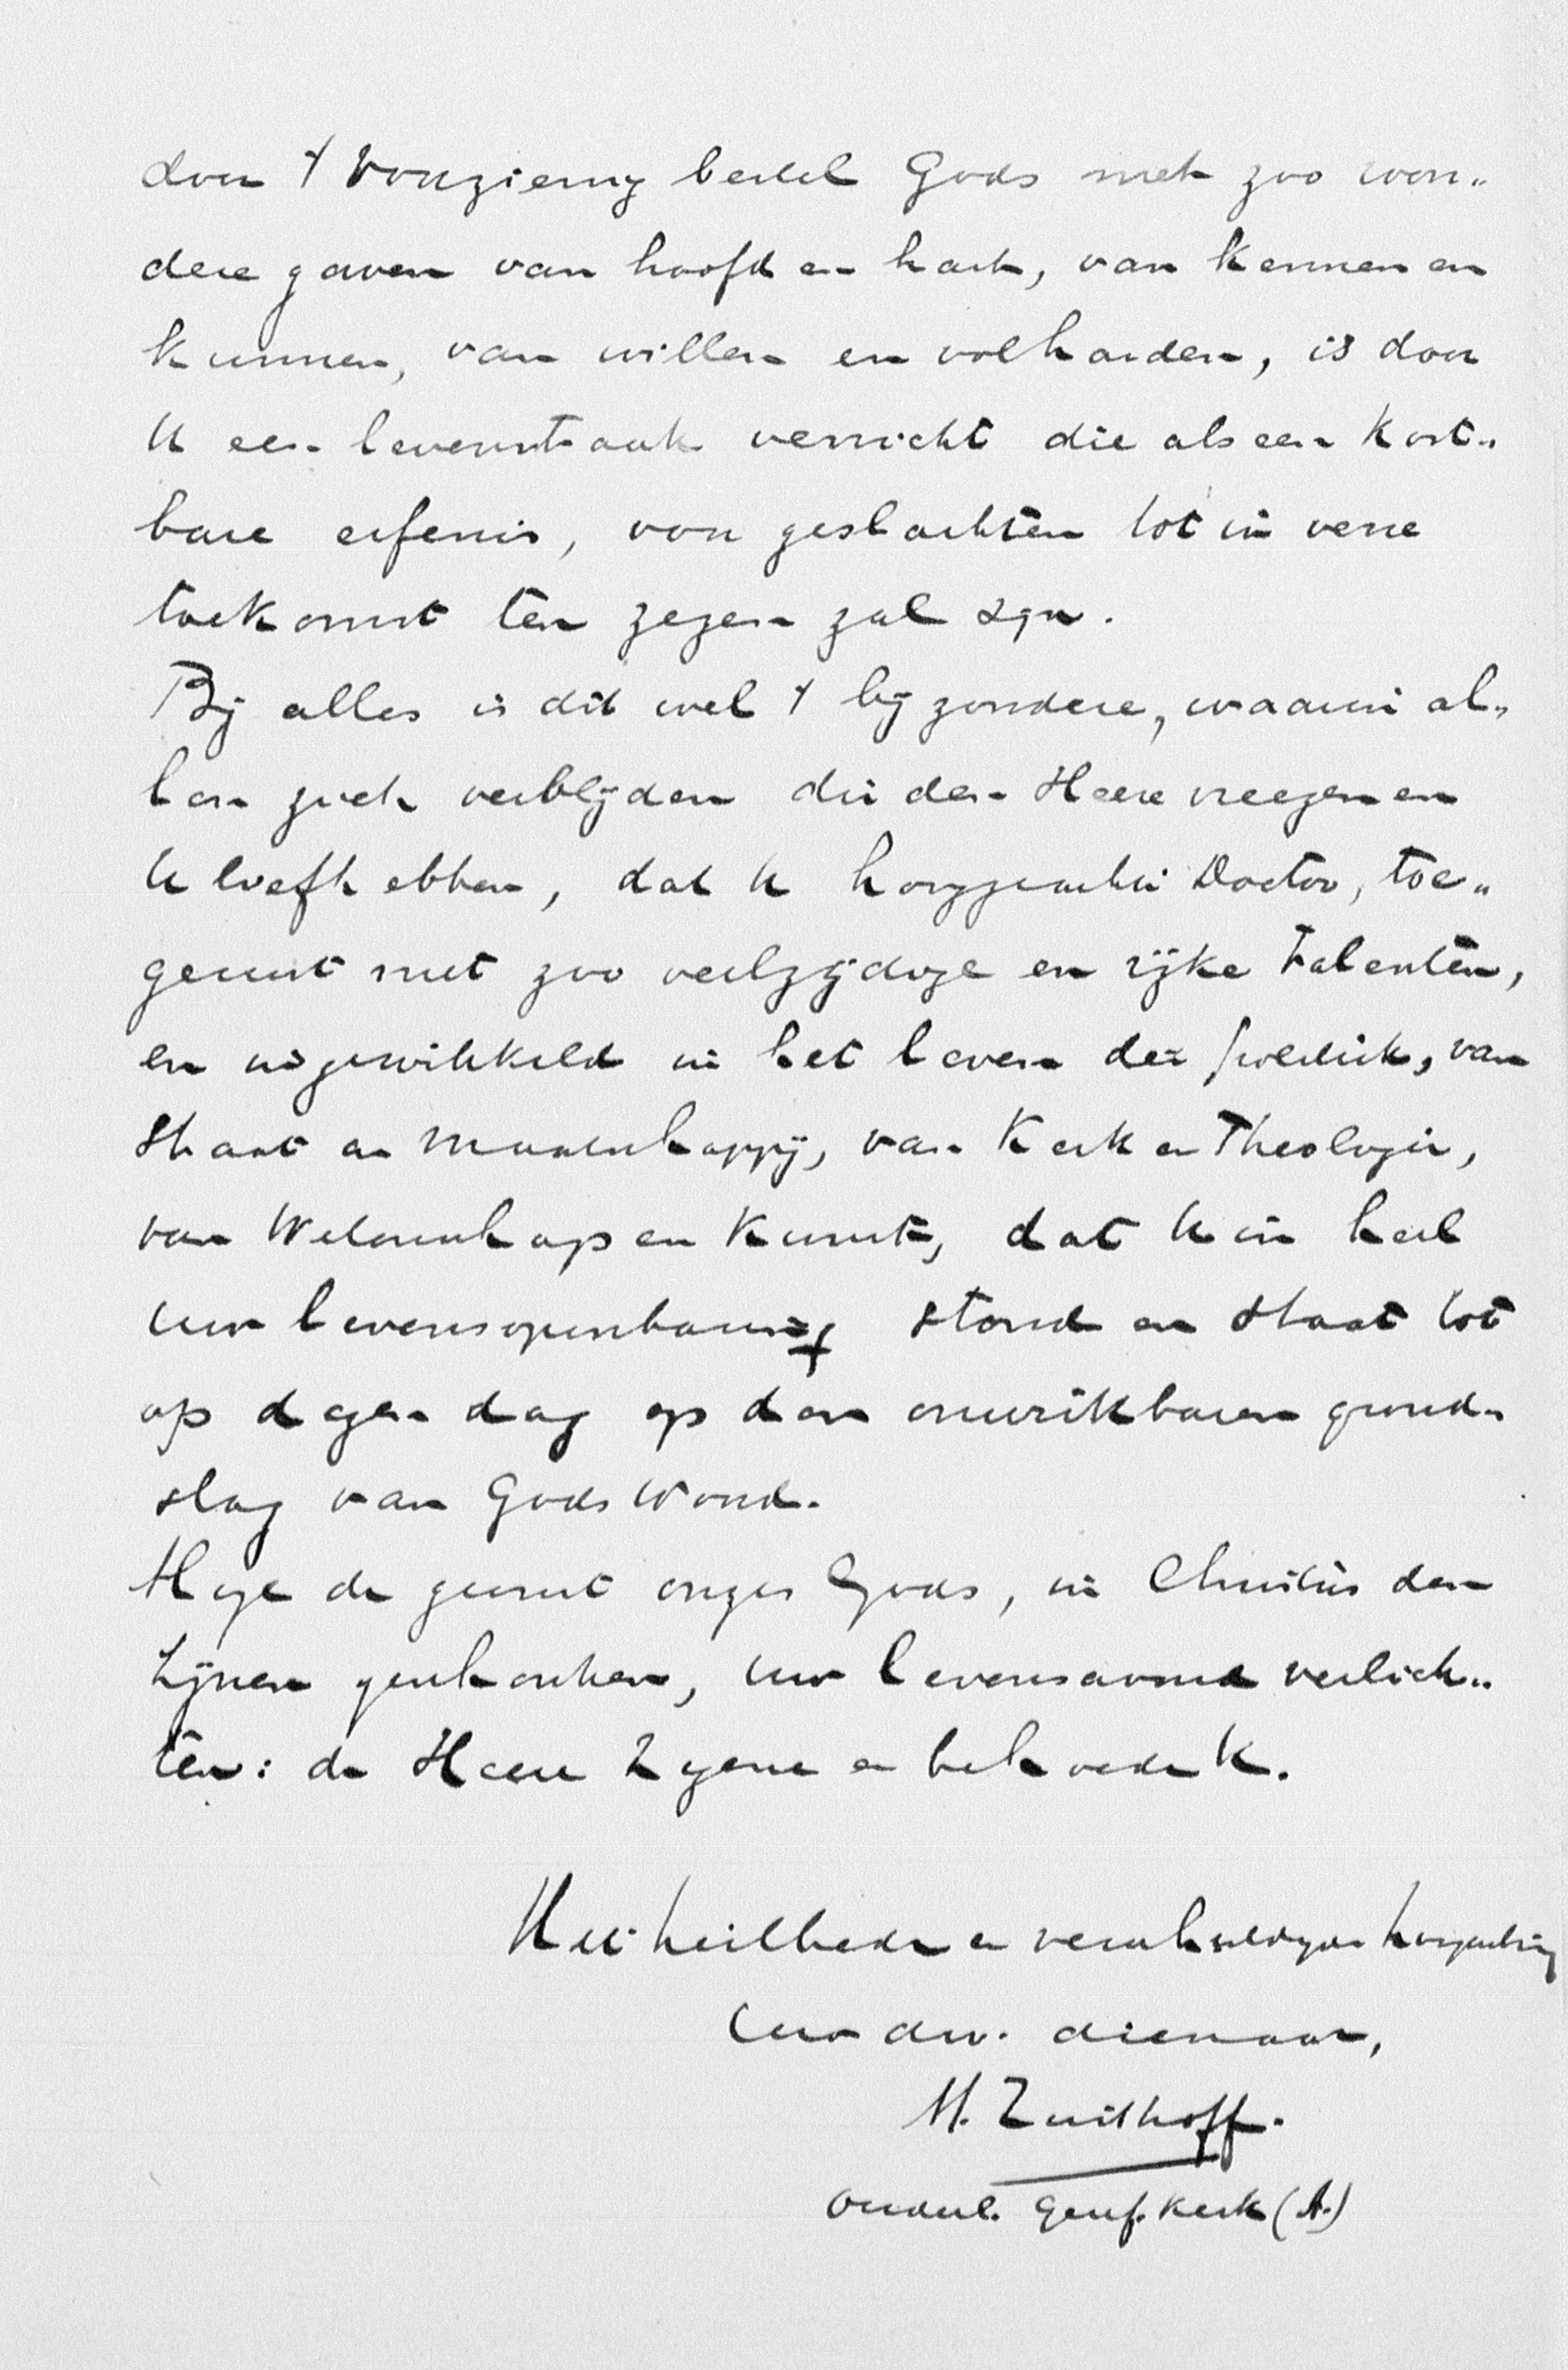 door 't voorzienig bestel Gods met zoo won„
dere gaven van hoofd en hart, van kennen en
kunnen, van willen en volharden, is door
U een levenstaak verricht die als een kost„
bare erfenis, voor geslachten tot in verre
toekomst ten zegen zal zijn.
Bij alles is dit wel 't bijzondere, waarin al„
len zich verblijden die den Heere vreezen en
U liefhebben, dat U hooggeachte Doctor, toe„
gerust met zoo veelzijdige en rijke talenten,
en ingewikkeld in het leven der politiek, van
Staat en Maatschappij, van Kerk en Theologie,
van Wetenschap en Kunst, dat U in heel
Uw levensopenbaring stond en staat tot
op dezen dag op den onwrikbaren grond„
slag van Gods Woord.
Moge de gunst onzes Gods, in Christus den
Zijnen geschonken, Uw levensavond verlich„
ten: de Heere zegene en behoede U.
Met heilbede en verschuldigde hoogachting
Uw dw. dienaar,
H. Zuidhoff.
Ouderl. Geref. Kerk (A.)